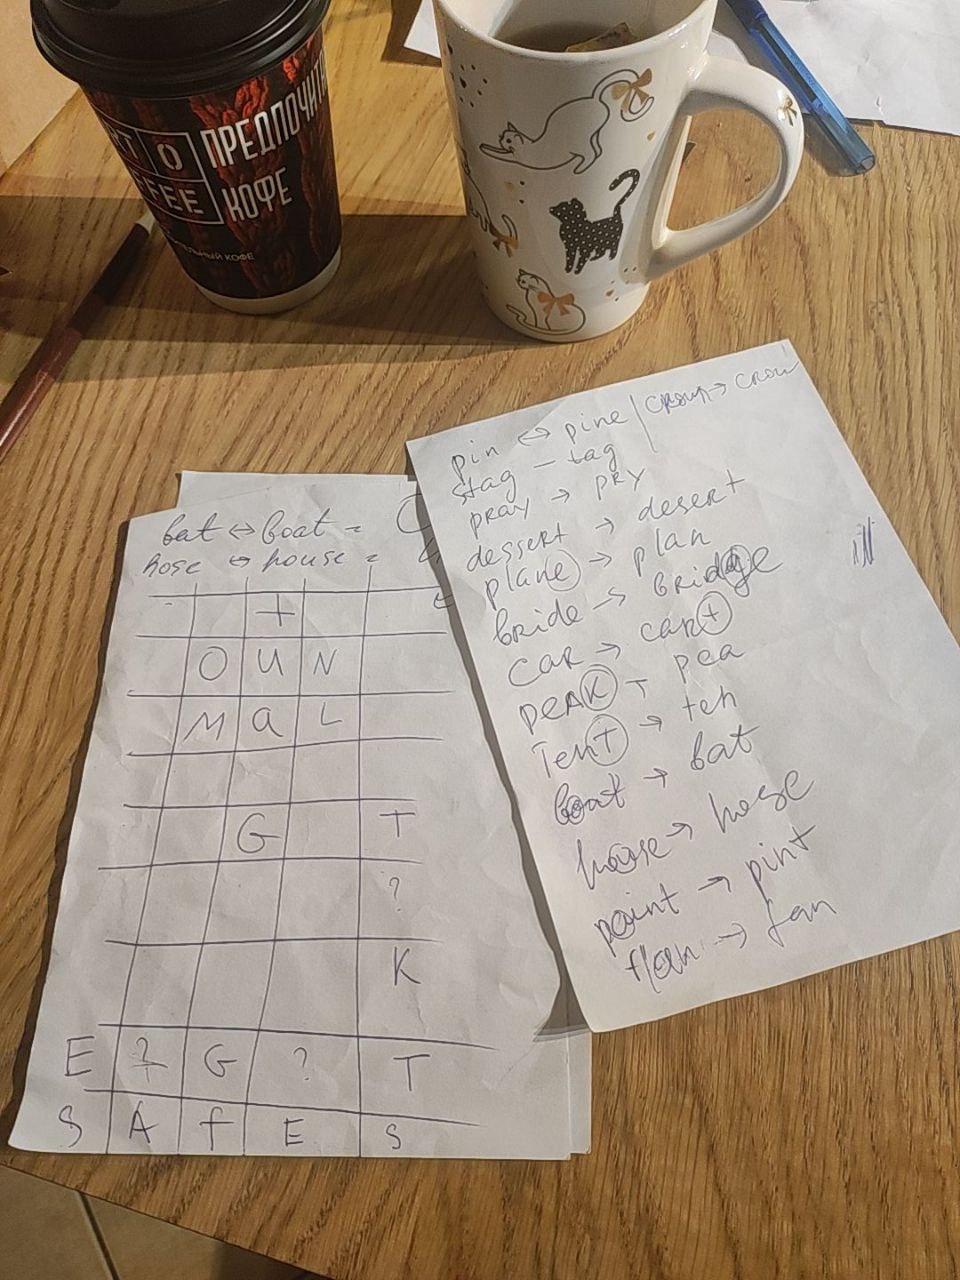 ПРЕДПОЧИТА
КОФЕ
bat ↔ boat =
hose ↔ house =
+
O U N
M a L
G T
?
K
E ? G ? T
S A f E S
pin ↔ pine | crown → crow
stag – tag
pray → pry
dessert → desert
plane → plan
bride → bridge
car → cart
peak → pea
Tent → ten
boat → bat
house → hose
point → pint
flan → fan